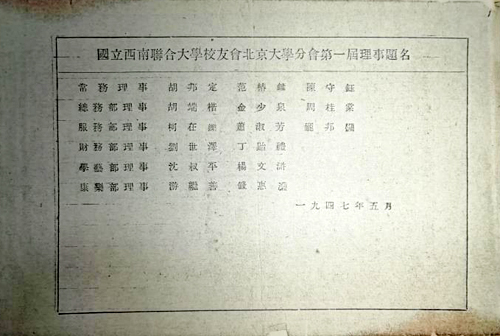 國立西南聯合大學校友會北京大學分會第一屆理事題名
常務理事 胡邦定 范椿 陳守
總務部理事 胡端楷 金少泉 周桂棠
服務部理事 柯在 蕭淑芳 邦
財務部理事 劉世澤 丁貽禮
學藝部理事 沈叔平 楊文
康樂部理事 游繼善 盤惠
一九四七年五月